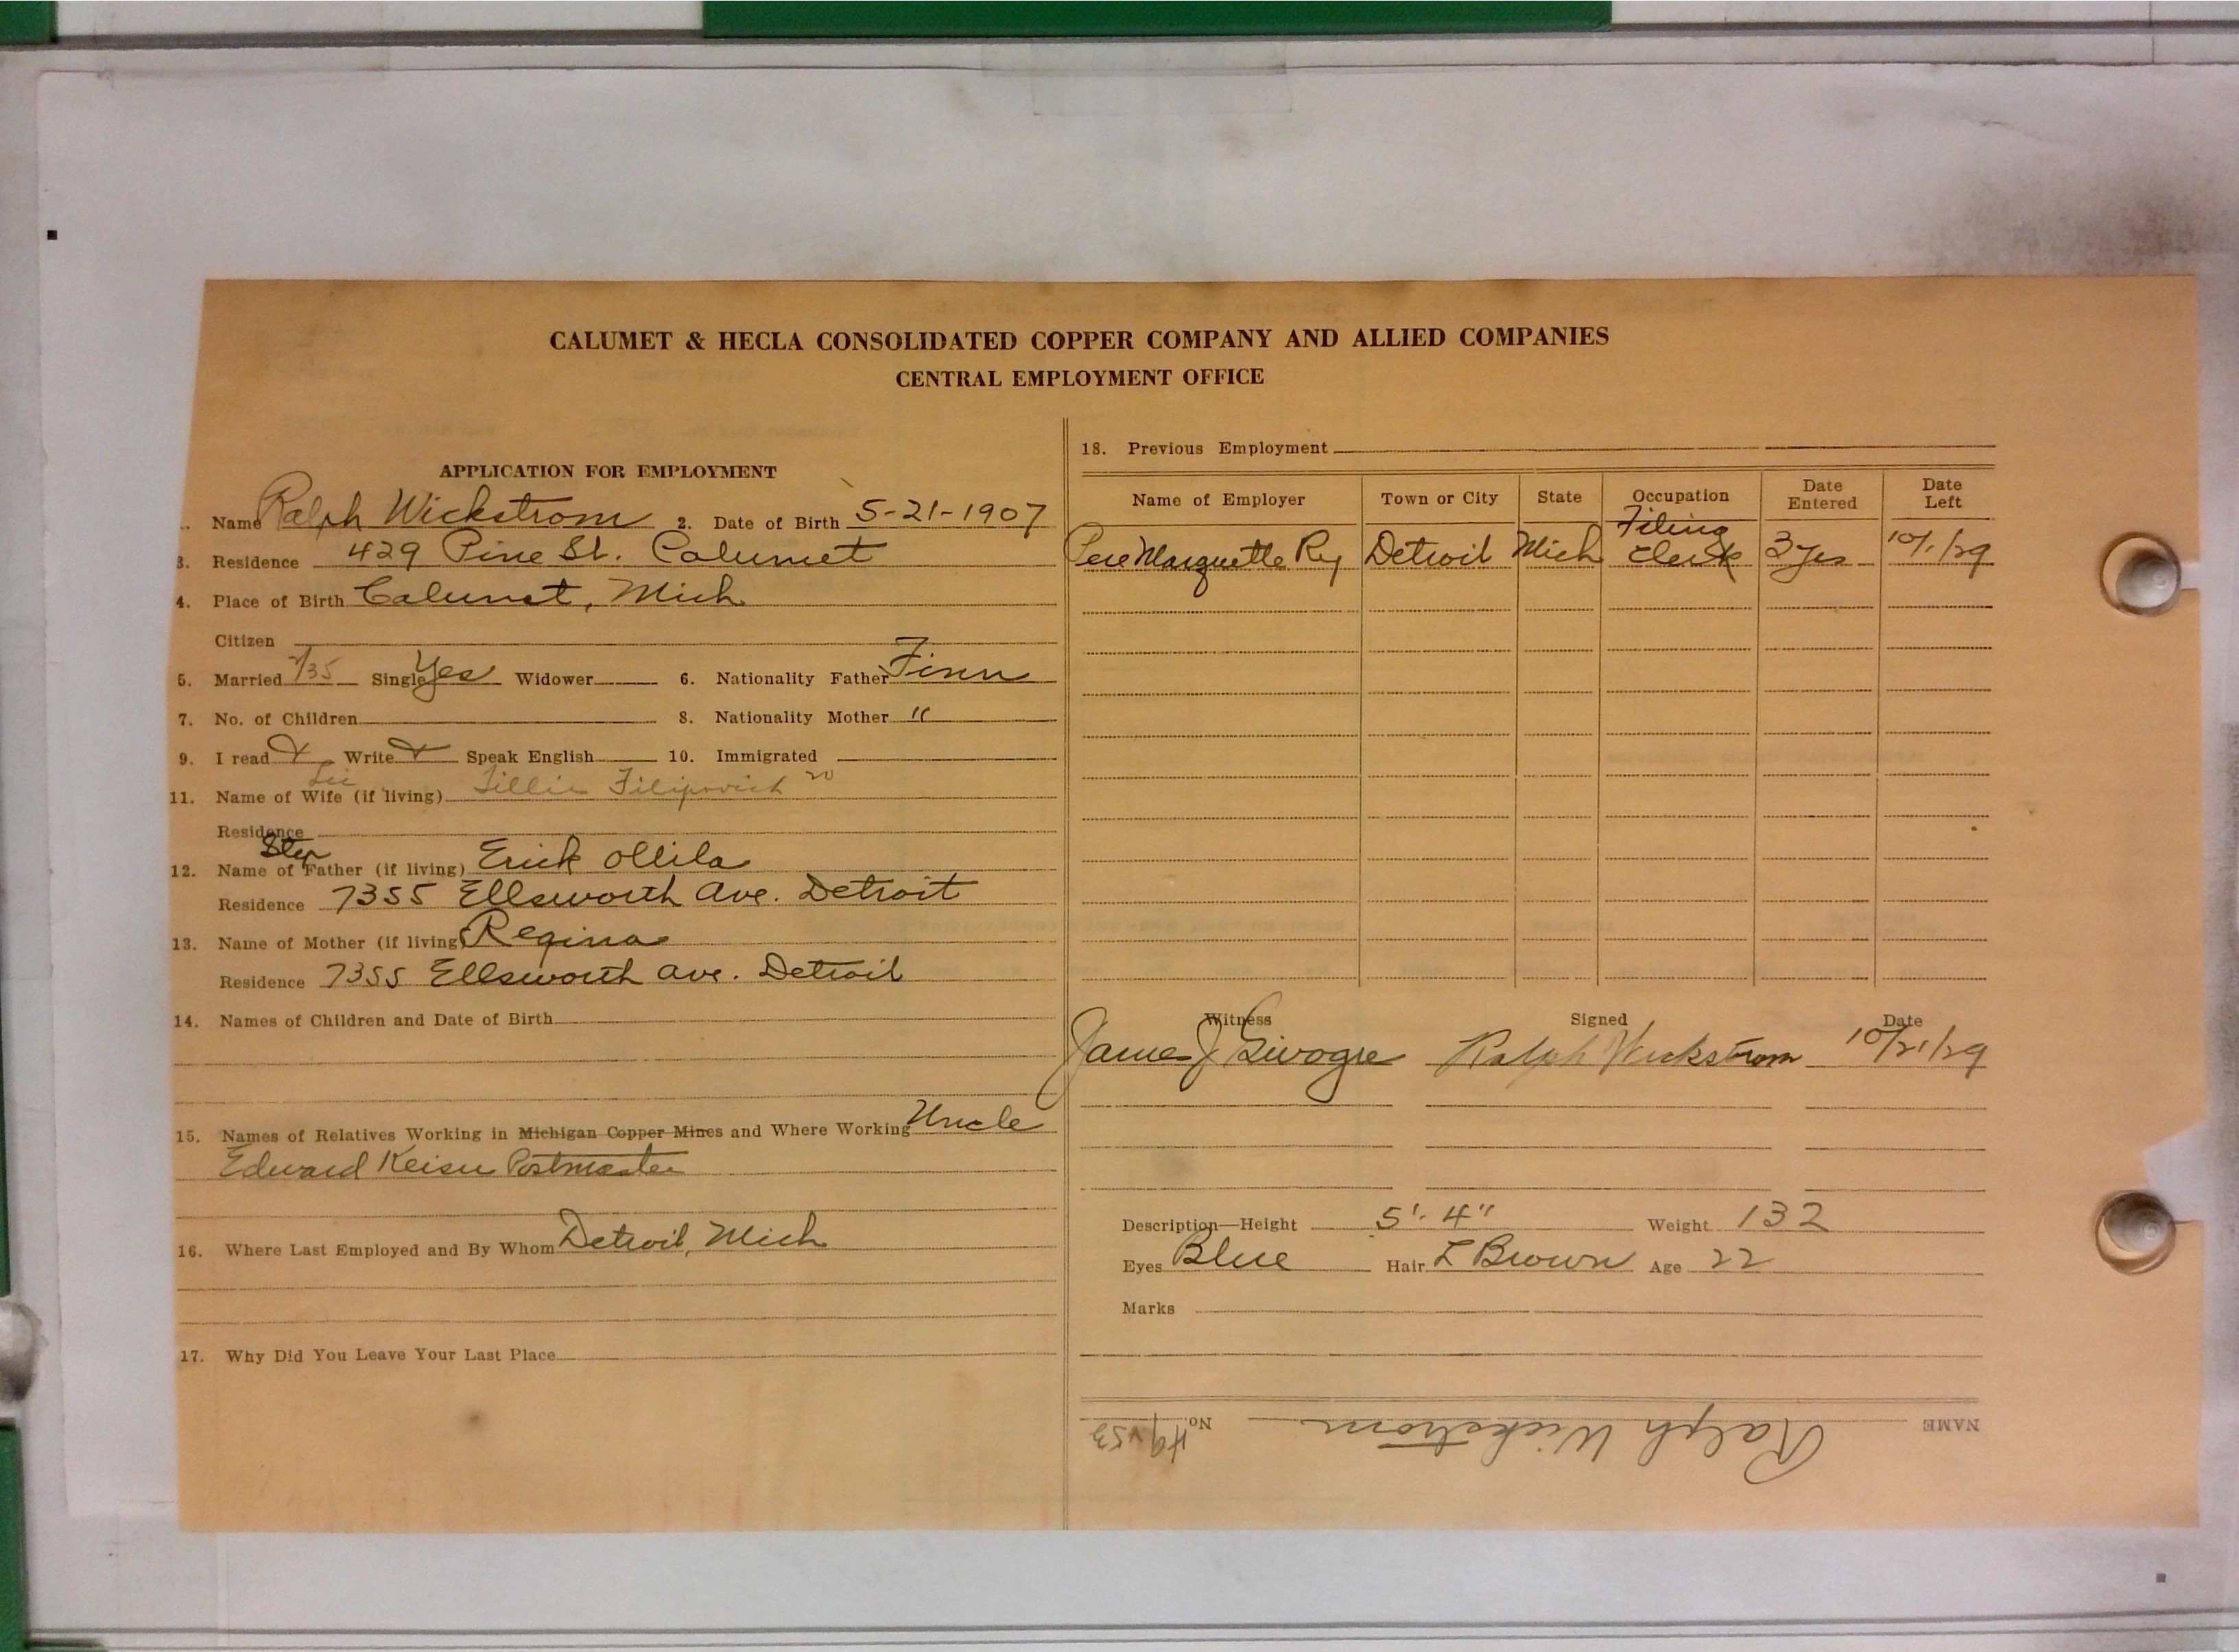 CALUMET & HECLA CONSOLIDATED COPPER COMPANY AND ALLIED COMPANIES
CENTRAL EMPLOYMENT OFFICE
APPLICATION FOR EMPLOYMENT
Name Ralph Wickstrom 2. Date of Birth 5-21-1907
3. Residence 429 Pine St. Calumet
4. Place of Birth Calumet, Mich
Citizen
5. Married /35 Single Yes Widower 6. Nationality Father Finn
7. No. of Children 8. Nationality Mother "
9. I read Write Speak English 10. Immigrated
11. Name of Wife (if living) Lillie Filipovich
Residence
Step
12. Name of Father (if living) Erick Ollila
Residence 7355 Ellsworth Ave. Detroit
13. Name of Mother (if living) Regina
Residence 7355 Ellsworth Ave. Detroit
14. Names of Children and Date of Birth
15. Names of Relatives Working in Michigan Copper Mines and Where Working Uncle
Edward Keisu Postmaster
16. Where Last Employed and By Whom Detroit, Mich
17. Why Did You Leave Your Last Place
18. Previous Employment
Name of Employer Town or City State Occupation Date Entered Date Left
Pere Marquette Ry Detroit Mich Filing Clerk 3 yrs 10/1/29
Witness Signed Date
James J Ralph Wickstrom 10/21/29
Description—Height 5'. 4" Weight 132
Eyes Blue Hair L Brown Age 22
Marks
NAME Ralph Wickstrom No.